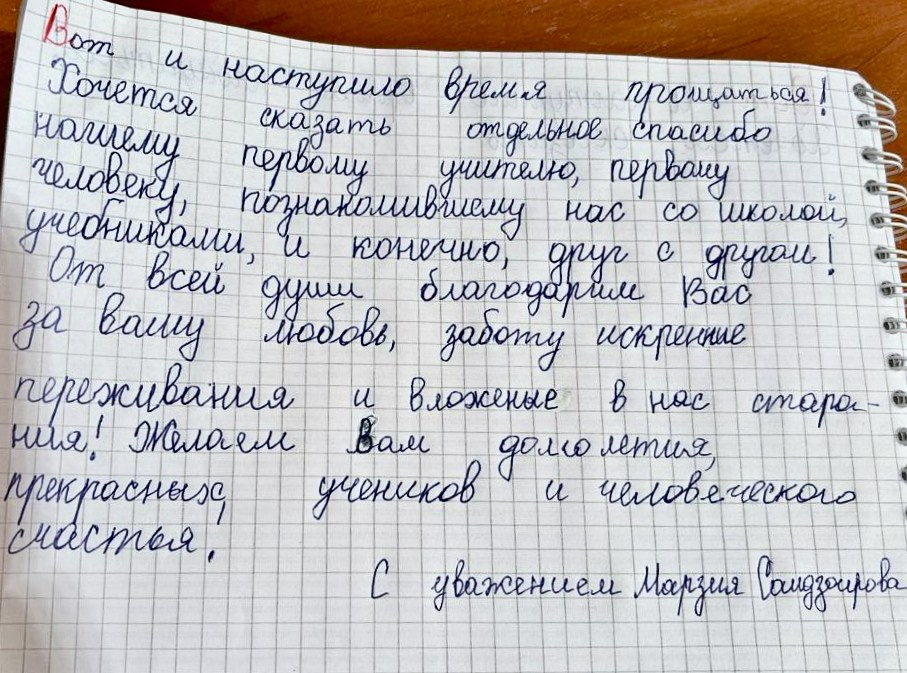 Вот и наступило время прощаться!
Хочется сказать отдельное спасибо
нашему первому учителю, первому
человеку, познакомившему нас со школой,
учебниками, и конечно, друг с другом!
От всей души благодарим Вас
за вашу любовь, заботу искренние
переживания и вложеные в нас стара-
ния! Желаем Вам долголетия,
прекрасных, учеников и человеческого
счастья!
С уважением Марзия Саидзаирова